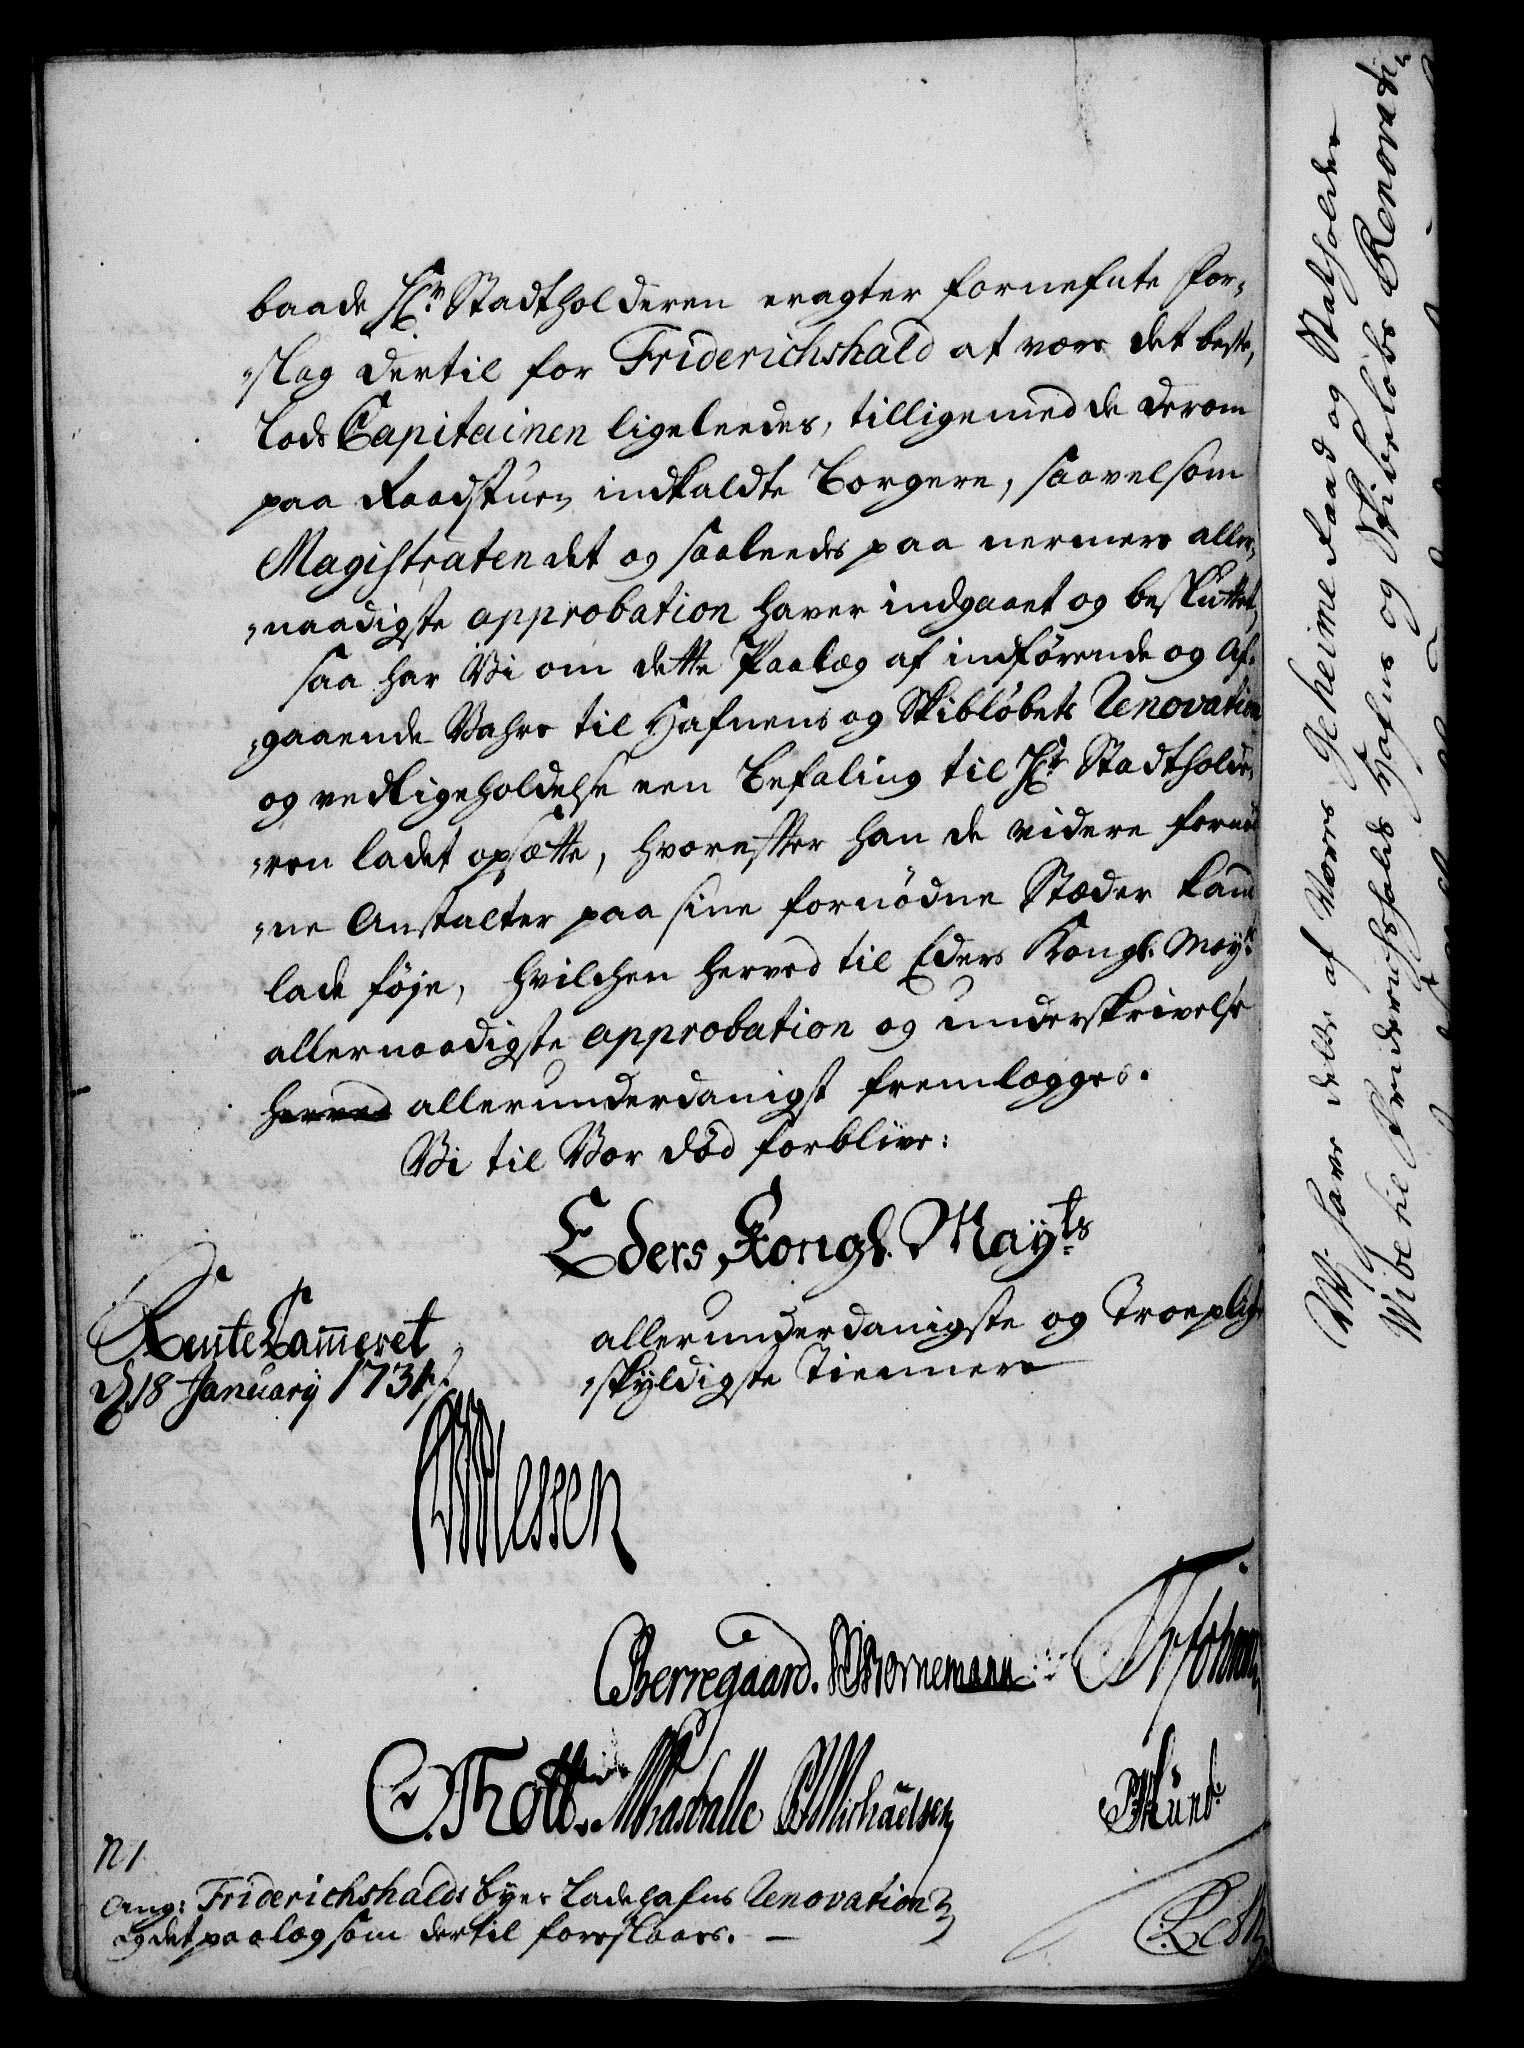 baade Hr. Stadtholderen eragter fornefnte For¬
„slag dertil for Friderichshald at være det beste,
Lods Capitainen ligeleedes, tilligemed de derom
paa Raadstuen indkaldte Borgere, saavelsom
Magistraten det og saaleedes paa nermere aller¬
„naadigste approbation haver indgaaet og besluttet,
saa har Vi om dette Paalæg af indførende og Af¬
„gaaende Vahre til Hafnens og Skibløbets Renovation
og vedligeholdelse een Befaling til Hr. Stadtholde¬
„ren ladet opsætte, hvorefter han de videre fornød
„ne Anstalter paa sine fornødne Stæder kand
lade føje, hvilchen herved til Eders Kongl. Mayts
allernaadigste approbation og underskrivelse
herved allerunderdanigst fremlegges.
Vi til Vor død forblive:
Eders Kongl. Mayts
allerunderdanigste og Troepligt
„skyldigste Tiennere
Rente Cammeret
d. 18 January 1731.
CAvPlessen
CBerregaard. WBornemann.
O. Thott. Braëm
N 1
Ang: Friderichshalds Byes Ladehafns Renovation
og det paalæg som dertil foreslaaes. —
Wi have dette af Vores Geheime Raad og Statholder
Wibe til Friderichshalds Hafns og Skibeløbs Renovati¬